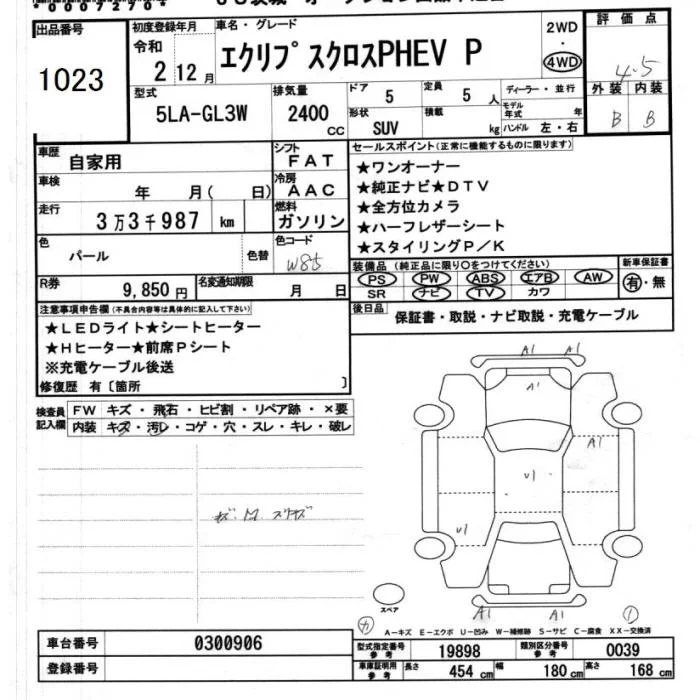 出品番号
1023
初度登録年月
令和
2 12 月
車名・グレード
エクリプスクロスPHEV P
2WD
・
4WD
評価点
4.5
外装 内装
B B
型式
5LA-GL3W
排気量
2400
CC
ドア
5
定員
5 人
形状
SUV
積載
kg
ディーラー・並行
モデル年式 年
ハンドル 左・右
車歴
自家用
シフト
FAT
車検
年 月( 日)
冷房
AAC
走行
3万3千987 km
燃料
ガソリン
色
パール
色替
色コード
W85
R券
9,850 円
名変通知期限
月 日
セールスポイント(正常に機能するものに限ります)
★ワンオーナー
★純正ナビ★DTV
★全方位カメラ
★ハーフレザーシート
★スタイリングP/K
装備品(純正品に限り○をつけてください)
PS PW ABS エアB AW
SR ナビ TV カワ
新車保証書
有・無
後日品
保証書・取説・ナビ取説・充電ケーブル
注意事項申告欄(不具合内容等は具体的に記入して下さい)
★LEDライト★シートヒーター
★Hヒーター★前席Pシート
※充電ケーブル後送
修復歴 有〔箇所 〕
検査員記入欄
FW キズ・飛石・ヒビ割・リペア跡・×要
内装 キズ・汚レ・コゲ・穴・スレ・キレ・破レ
A1 A1
A1
A1
U1
U1
A1 A1
スペア
A-キズ E-エクボ U-凹み W-補修跡 S-サビ C-腐食 XX-交換済
車台番号
0300906
登録番号
型式指定番号 参考
19898
類別区分番号 参考
0039
車庫証明用 参考
長さ 454 cm 幅 180 cm 高さ 168 cm